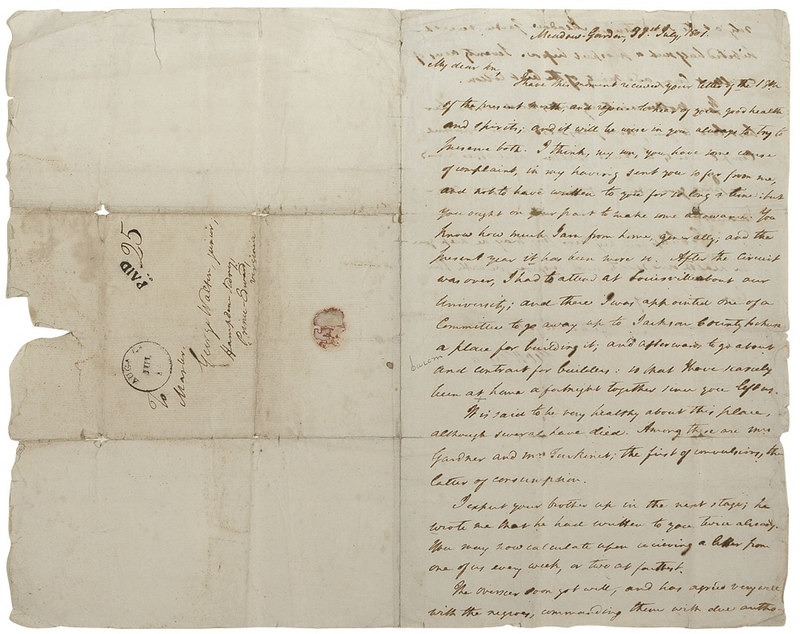 Meadow-Garden, 30th July 1801.
My dear son,
I have this moment received your letter of the 15th
of the present month, and rejoice to hear of your good health
and spirits; and it will be wise in you always to try to
preserve both. I think, my son, you have some cause
of complaint, in my having sent you so far from me,
and not to have written to you for so long a time: but
you ought on your part to make some allowance. You
know how much I am from home, generally; and the
present year it has been more so. After the Circuit
was over, I had to attend at Louisville about our
University; and there I was appointed one of a
Committee to go away up to Jackson County to choose
a place for building it; and afterwards to go about
and contract for builders: so that I have scarcely
been at home a fortnight together since you left us.
It is said to be very healthy about this place,
although several have died. Among these are Mrs
Gardner and Mrs the first of convulsions, the
latter of consumption.
I expect your brother up in the next stage; he
wrote me that he had written to you twice already.
You may now calculate upon recieving a letter from
one of us every week, or two at farthest.
The overseer soon got well, and has agreed very well
with the negroes, commanding them with due autho-
PAID 25
AUG
JUL
To
Master
George Walton, junior,
Hampden Sidney
Prince Edward
Virginia